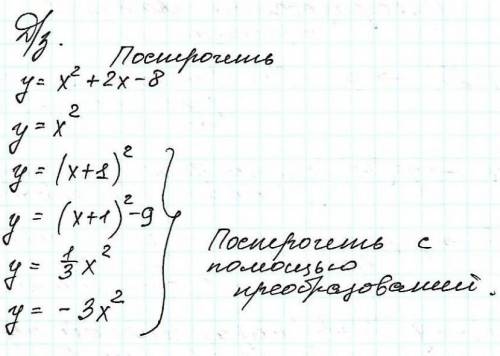 Д/з.
Построить
y = x² + 2x - 8
y = x²
y = (x+1)²
y = (x+1)² - 9
y = 1/3 x²
y = - 3x²
Построить с
помощью
преобразований.